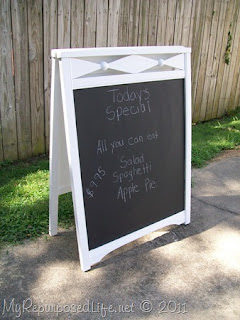 Today's
Special
All you can eat
Salad
$9.95 Spaghetti
Apple Pie
MyRepurposedLife.net © 2011